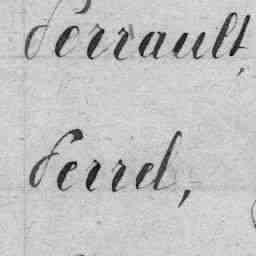 Perrault,
Perrel,